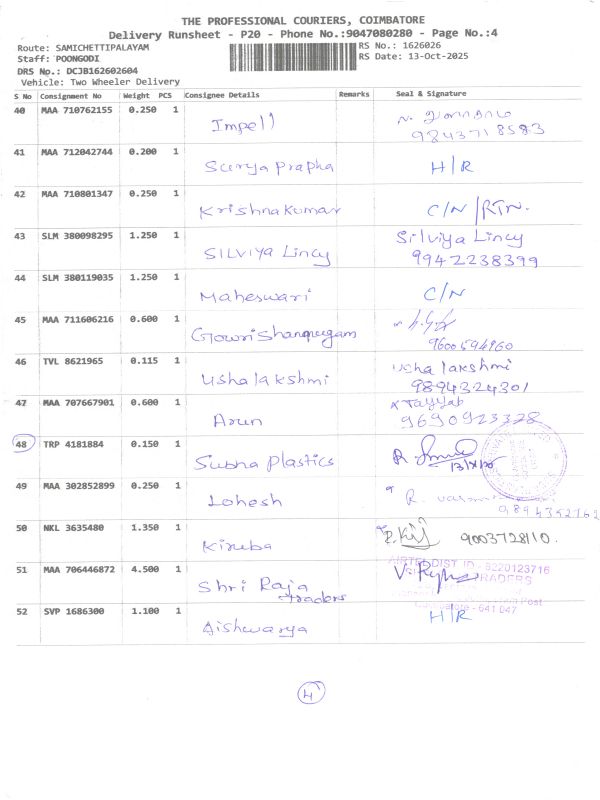 THE PROFESSIONAL COURIERS, COIMBATORE
Delivery Runsheet - P20 - Phone No.:9047080280 - Page No.:4
Route: SAMICHETTIPALAYAM RS No.: 1626026
Staff: POONGODI RS Date: 13-Oct-2025
DRS No.: DCJB162602604
Vehicle: Two Wheeler Delivery
S No Consignment No Weight PCS Consignee Details Remarks Seal & Signature
40 MAA 710762155 0.250 1 Impell
9843718583
41 MAA 712042744 0.200 1 Surya prapha H/R
42 MAA 710801347 0.250 1 Krishnakumar C/N/RTN.
43 SLM 380098295 1.250 1 SILVIYA Lincy Silviya Lincy
9942238399
44 SLM 380119035 1.250 1 Maheswari C/N
45 MAA 711606216 0.600 1 Gowrishanmugam
9600594960
46 TVL 8621965 0.115 1 Ushalakshmi Ushalakshmi
9894324301
47 MAA 707667901 0.600 1 Arun Tayyab
9690923328
48 TRP 4181884 0.150 1 Subha plastics
49 MAA 302852899 0.250 1 Lohesh R.
9894352762
50 NKL 3635480 1.350 1 Kiruba 9003728110.
51 MAA 706446872 4.500 1 Shri Raja traders
DIST ID 6220123716
TRADERS
Post
Coimbatore - 641 047
52 SVP 1686300 1.100 1 Aishwarya H/R
4